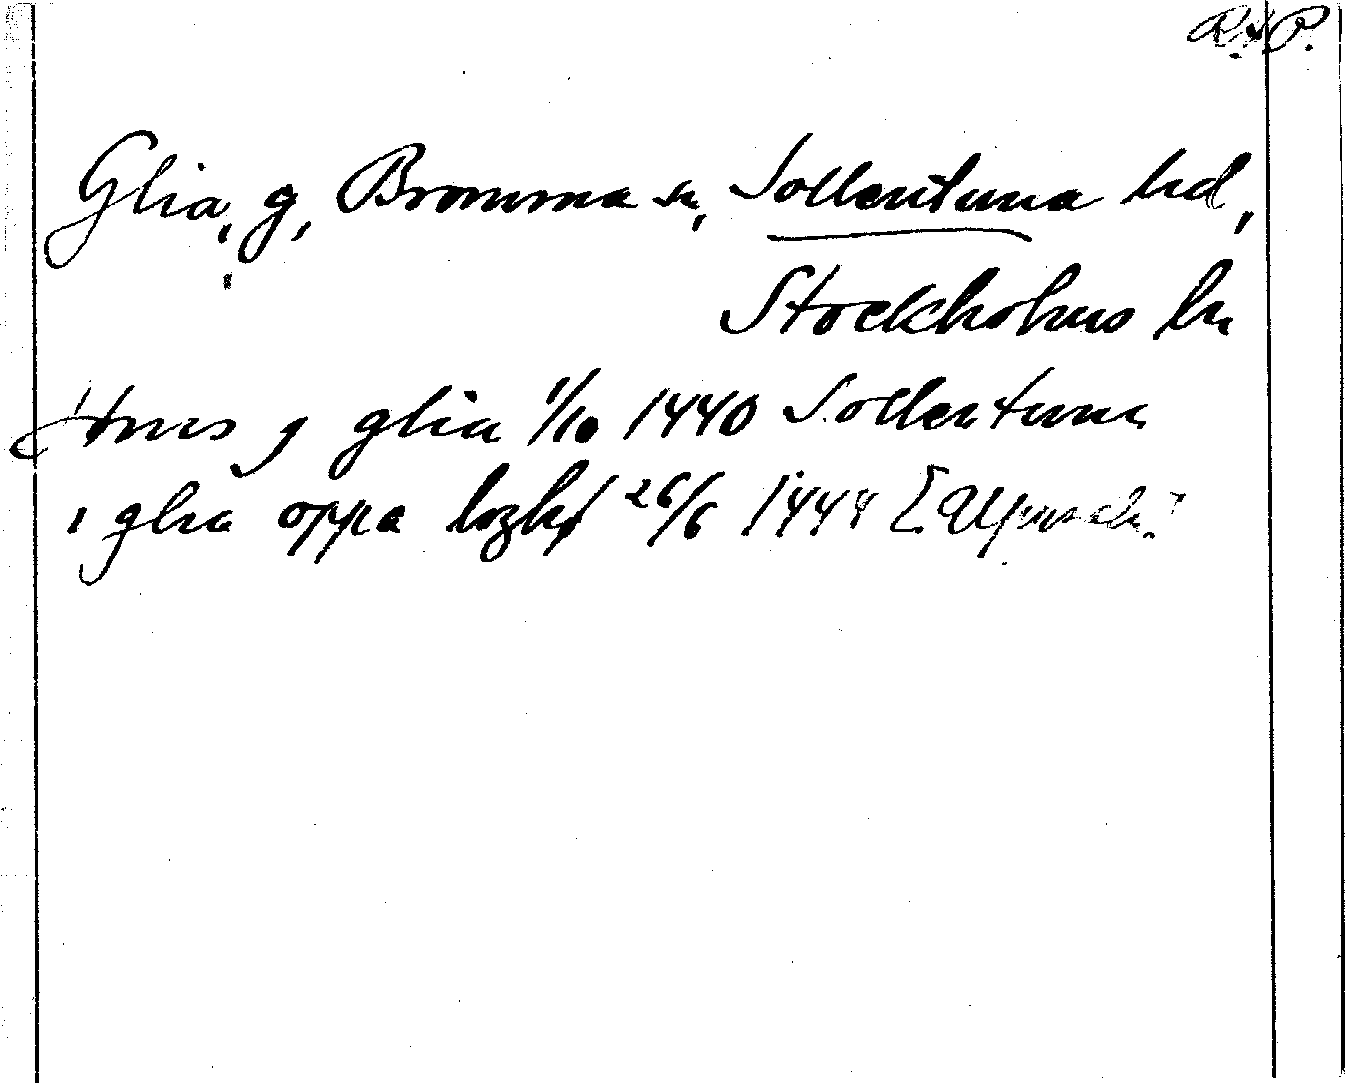 R.A.P.
Glia, g, Bromma sn, Sollentuna hd,
Stockholms ln
g glia 1/10 1440 Sollentuna
i glia oppa 26/6 1444 [